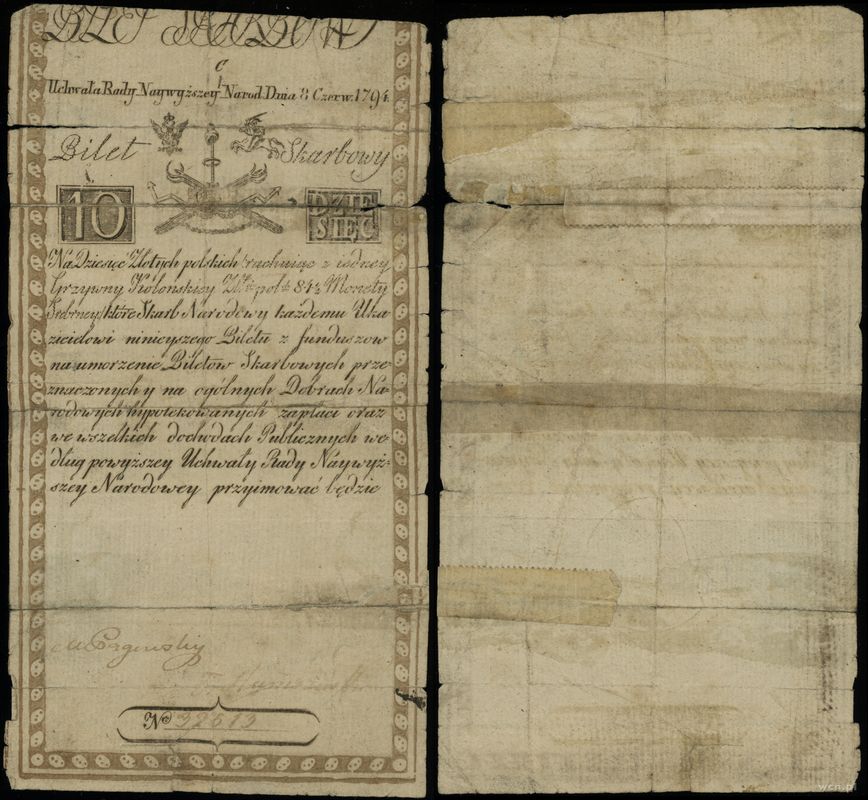 BILET SKARBOWY
C
1
Uchwała Rady Naywyższey Narod: Dnia 8 Czerw. 1794.
Bilet Skarbowy
10 DZIE
SIĘC
Na Dziesięć Złotych polskich rachuiąc z iedney
Grzywny Kolonskiey Zł: pol: 84½ Monety
Srebrney które Skarb Narodowy każdemu Uka
zicielowi ninieyszego Biletu z funduszow
na umorzenie Biletow Skarbowych prze-
znaczonych y na ogólnych Dobrach Na-
rodowych hypotekowanych zapłaci oraz
we wszelkich dochodach Publicznych we-
dług powyższey Uchwały Rady Naywyż-
szey Narodowey przyimować będzie
No 32613
wcn.pl